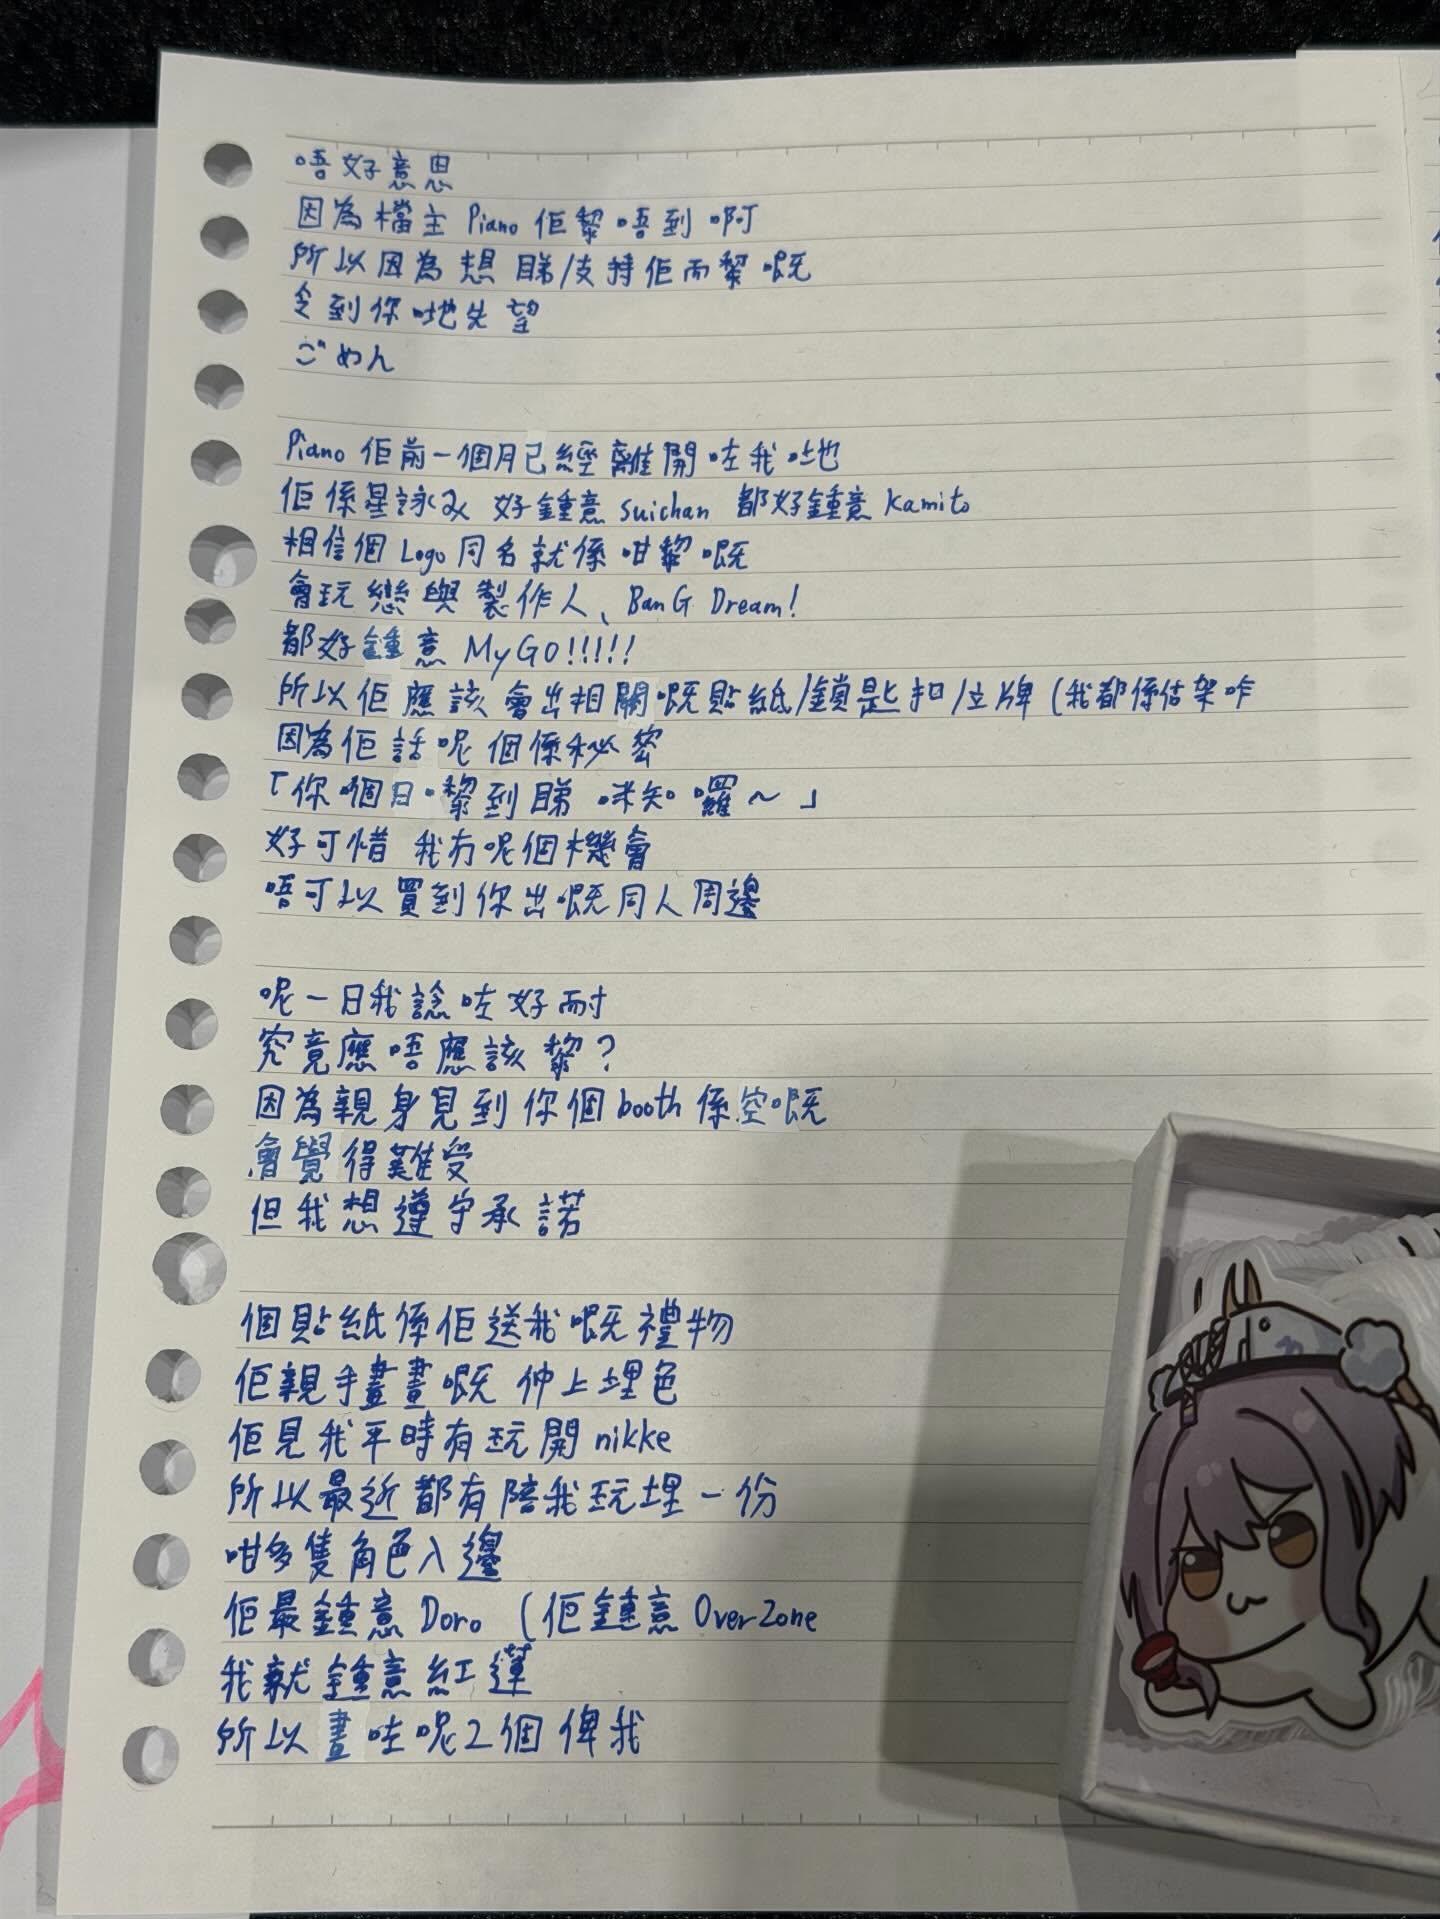 唔好意思
因為檔主 Piano 佢黎唔到啊
所以因為想睇/支持佢而黎嘅
令到你哋失望
ごめん
Piano 佢前一個月已經離開咗我哋
佢係星詠み 好鍾意 suichan 都好鍾意 Kamito
相信個 Logo 同名就係咁黎嘅
會玩戀與製作人、BanG Dream!
都好鍾意 MyGO!!!!!
所以佢應該會出相關嘅貼紙/鎖匙扣/立牌 (我都係估架咋
因為佢話呢個係秘密
「你嗰日黎到睇咪知囉~」
好可惜 我冇呢個機會
唔可以買到你出嘅同人周邊
呢一日我諗咗好耐
究竟應唔應該黎?
因為親身見到你個 booth 係空嘅
會覺得難受
但我想遵守承諾
個貼紙係佢送我嘅禮物
佢親手畫畫嘅 仲上埋色
佢見我平時有玩開 nikke
所以最近都有陪我玩埋一份
咁多隻角色入邊
佢最鍾意 Doro (佢鍾意 OverZone
我就鍾意紅蓮
所以畫咗呢2個俾我